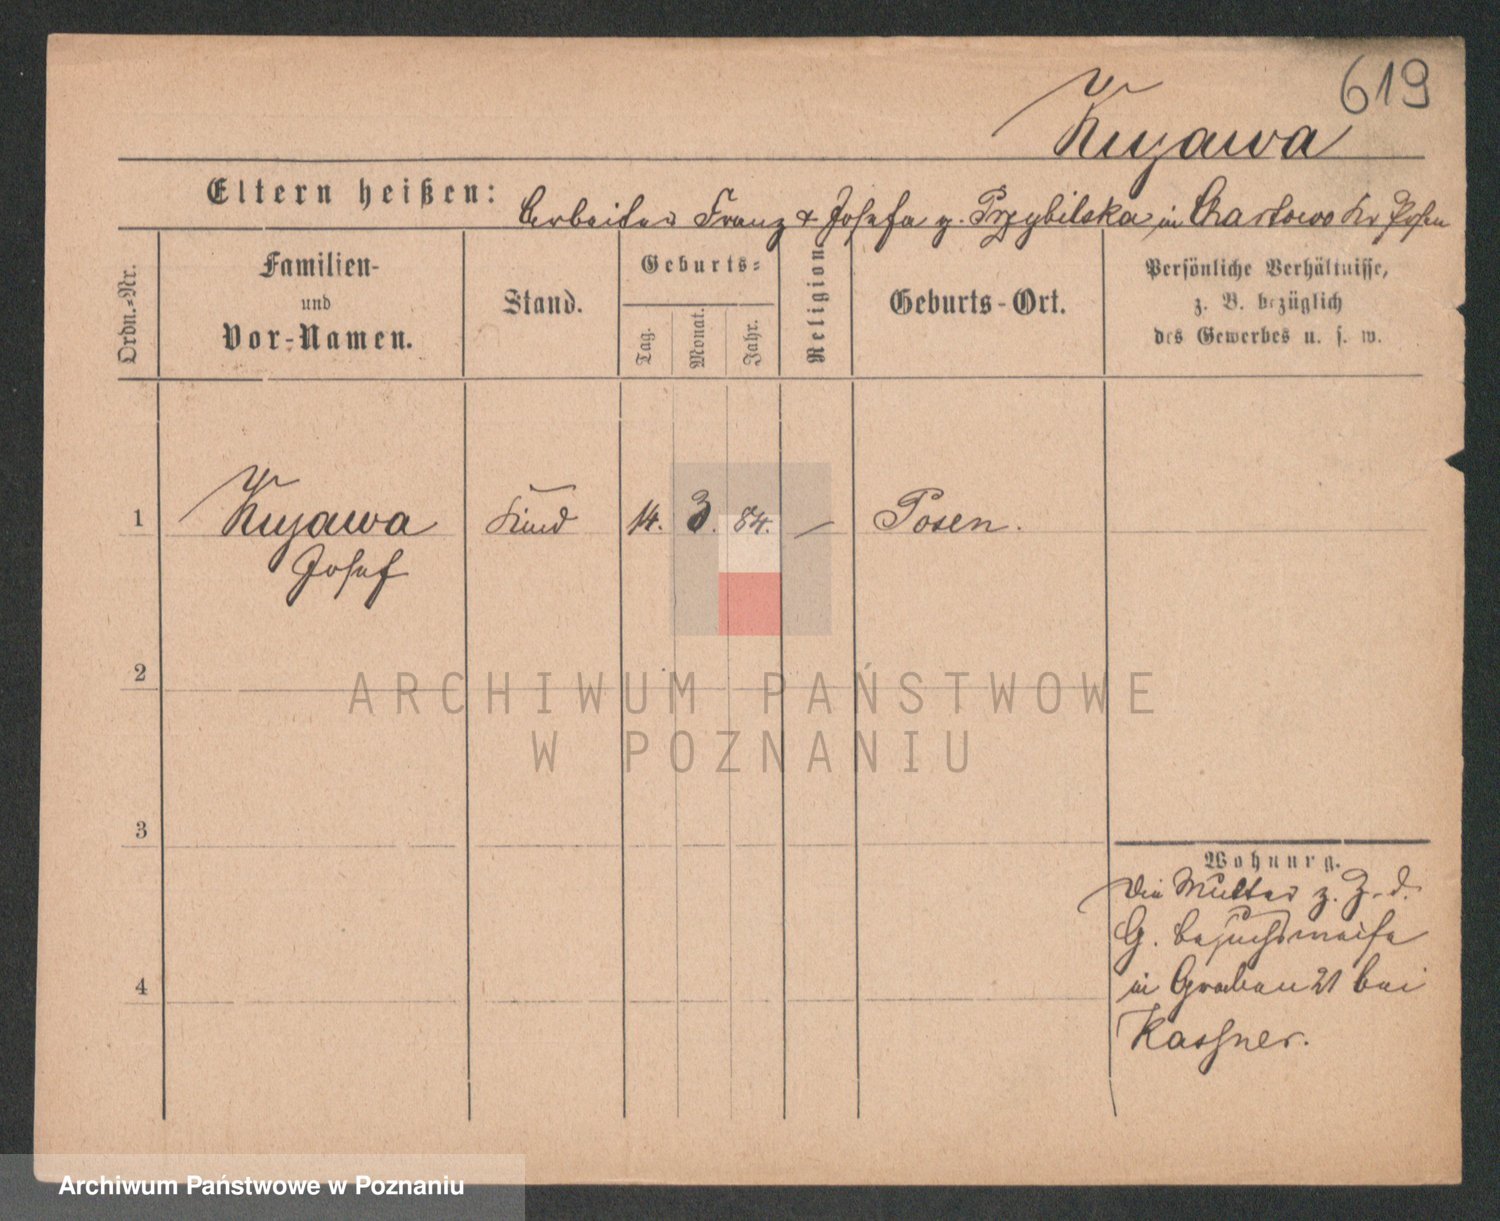 619
Kujawa
Eltern heißen: Arbeiter Franz & Josefa g. Przybilska in Chartowo Kr Posen
Ordn.-Nr.
Familien-
und
Vor-Namen.
Stand.
Geburts-
Tag.
Monat.
Jahr.
Religion
Geburts-Ort.
Persönliche Verhältnisse,
z. B. bezüglich
des Gewerbes u. s. w.
1 Kujawa Kind 14. 3. 84. – Posen.
Josef
2
ARCHIWUM PAŃSTWOWE
W POZNANIU
3
Wohnung.
Die Mutter z. Z. d.
G. besuchsweise
in Graben 21 bei
Kassner.
4
Archiwum Państwowe w Poznaniu